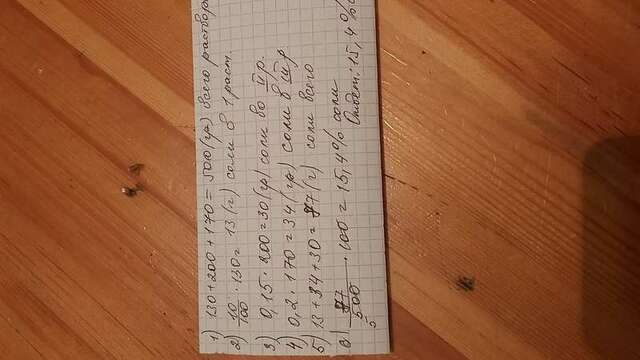 1) 130+200+170=500(гр) всего раствора
2) 10/100 · 130= 13(г) соли в 1 раст.
3) 0,15 · 200=30(гр) соли во II р.
4) 0,2 · 170=34(гр) соли в III р
5) 13+34+30=77(г) соли всего
6) 77/500 · 100 = 15,4% соли
5
Ответ: 15,4%